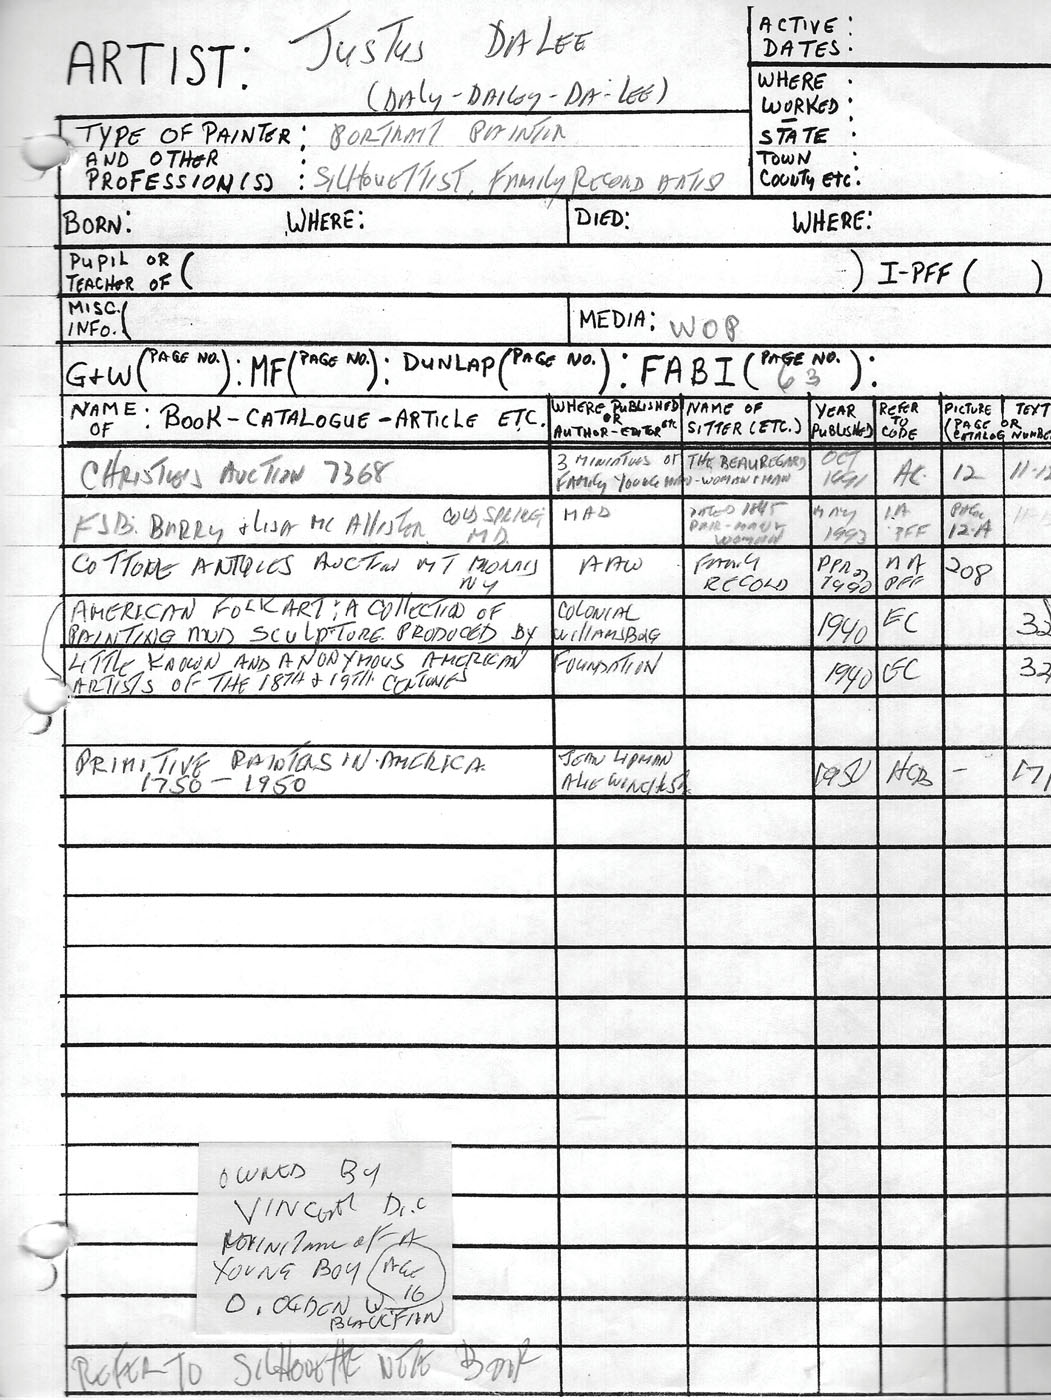 ARTIST: JUSTUS DALEE
(DALY-DAILEY-DA-LEE)
ACTIVE :
DATES :
WHERE :
WORKED :
STATE :
TOWN :
COUNTY ETC:
TYPE OF PAINTER : PORTRAIT PAINTER
AND OTHER
PROFESSION(S) : SILHOUETTIST, FAMILY RECORD ARTIST
BORN: WHERE: DIED: WHERE:
PUPIL OR
TEACHER OF ( ) I-PFF ( )
MISC.
INFO. (
MEDIA: WOP
G+W (PAGE NO.): MF (PAGE NO.): DUNLAP (PAGE NO.): FABI (PAGE NO. 63):
NAME OF : BOOK-CATALOGUE-ARTICLE ETC.
WHERE PUBLISHED
OR
AUTHOR-EDITOR ETC
NAME OF
SITTER (ETC.)
YEAR
PUBLISHED
REFER
TO
CODE
PICTURE TEXT
(PAGE OR
CATALOG NUMBER
CHRISTIES AUCTION 7368
3 MINIATURES OF
FAMILY YOUNG MAN-WOMAN+MAN
THE BEAUREGARD
OCT
1991
AC 12 11-12
BARRY + LISA MC ALLISTER COLD SPRING
MD.
MAD
DATED 1845
PAIR-MAN+
WOMAN
MAY
1993
PAGE
12-A
COTTONE ANTIQUES AUCTION MT MORRIS
NY
AAW
FAMILY
RECORD
1990
PFF
208
AMERICAN FOLK ART: A COLLECTION OF
PAINTING AND SCULPTURE PRODUCED BY
COLONIAL
WILLIAMSBURG
1940 EC 32
LITTLE KNOWN AND ANONYMOUS AMERICAN
ARTISTS OF THE 18TH + 19TH CENTURIES
FOUNDATION
1940 EC 32
PRIMITIVE PAINTERS IN AMERICA
1750 - 1950
JEAN LIPMAN
ALICE WINCHESTER
1950 HCB - 171
OWNED BY
VINCENT DiC
MINIATURE OF A
YOUNG BOY (AGE
16
O. OGDEN W.
BLACK FIAN
REFER TO SILHOUETTE NOTE BOOK